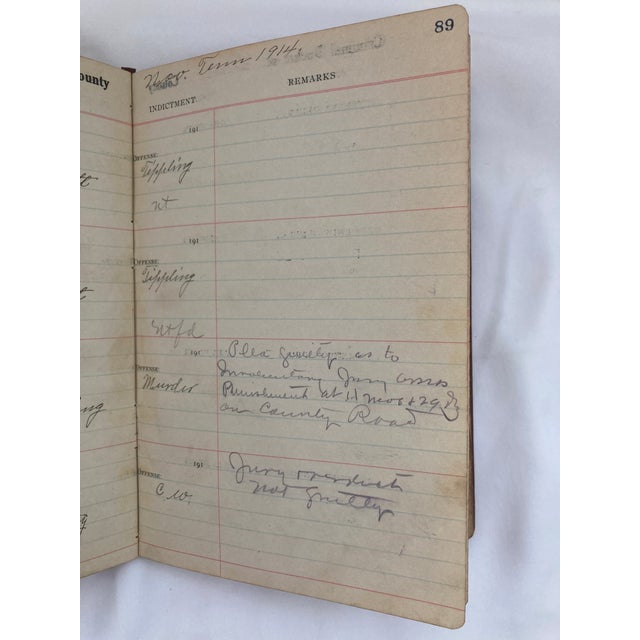 89
Nov. Term 1914.
ounty
INDICTMENT
REMARKS
191
OFFENSE
Tippling
nt
191
OFFENSE
Tippling
ntfd
191
Plea guilty as to
OFFENSE
Involuntary Jury
Murder
Punishment at 11 mos & 29
on County Road
191
Jury & verdict
OFFENSE
not guilty
C.W.